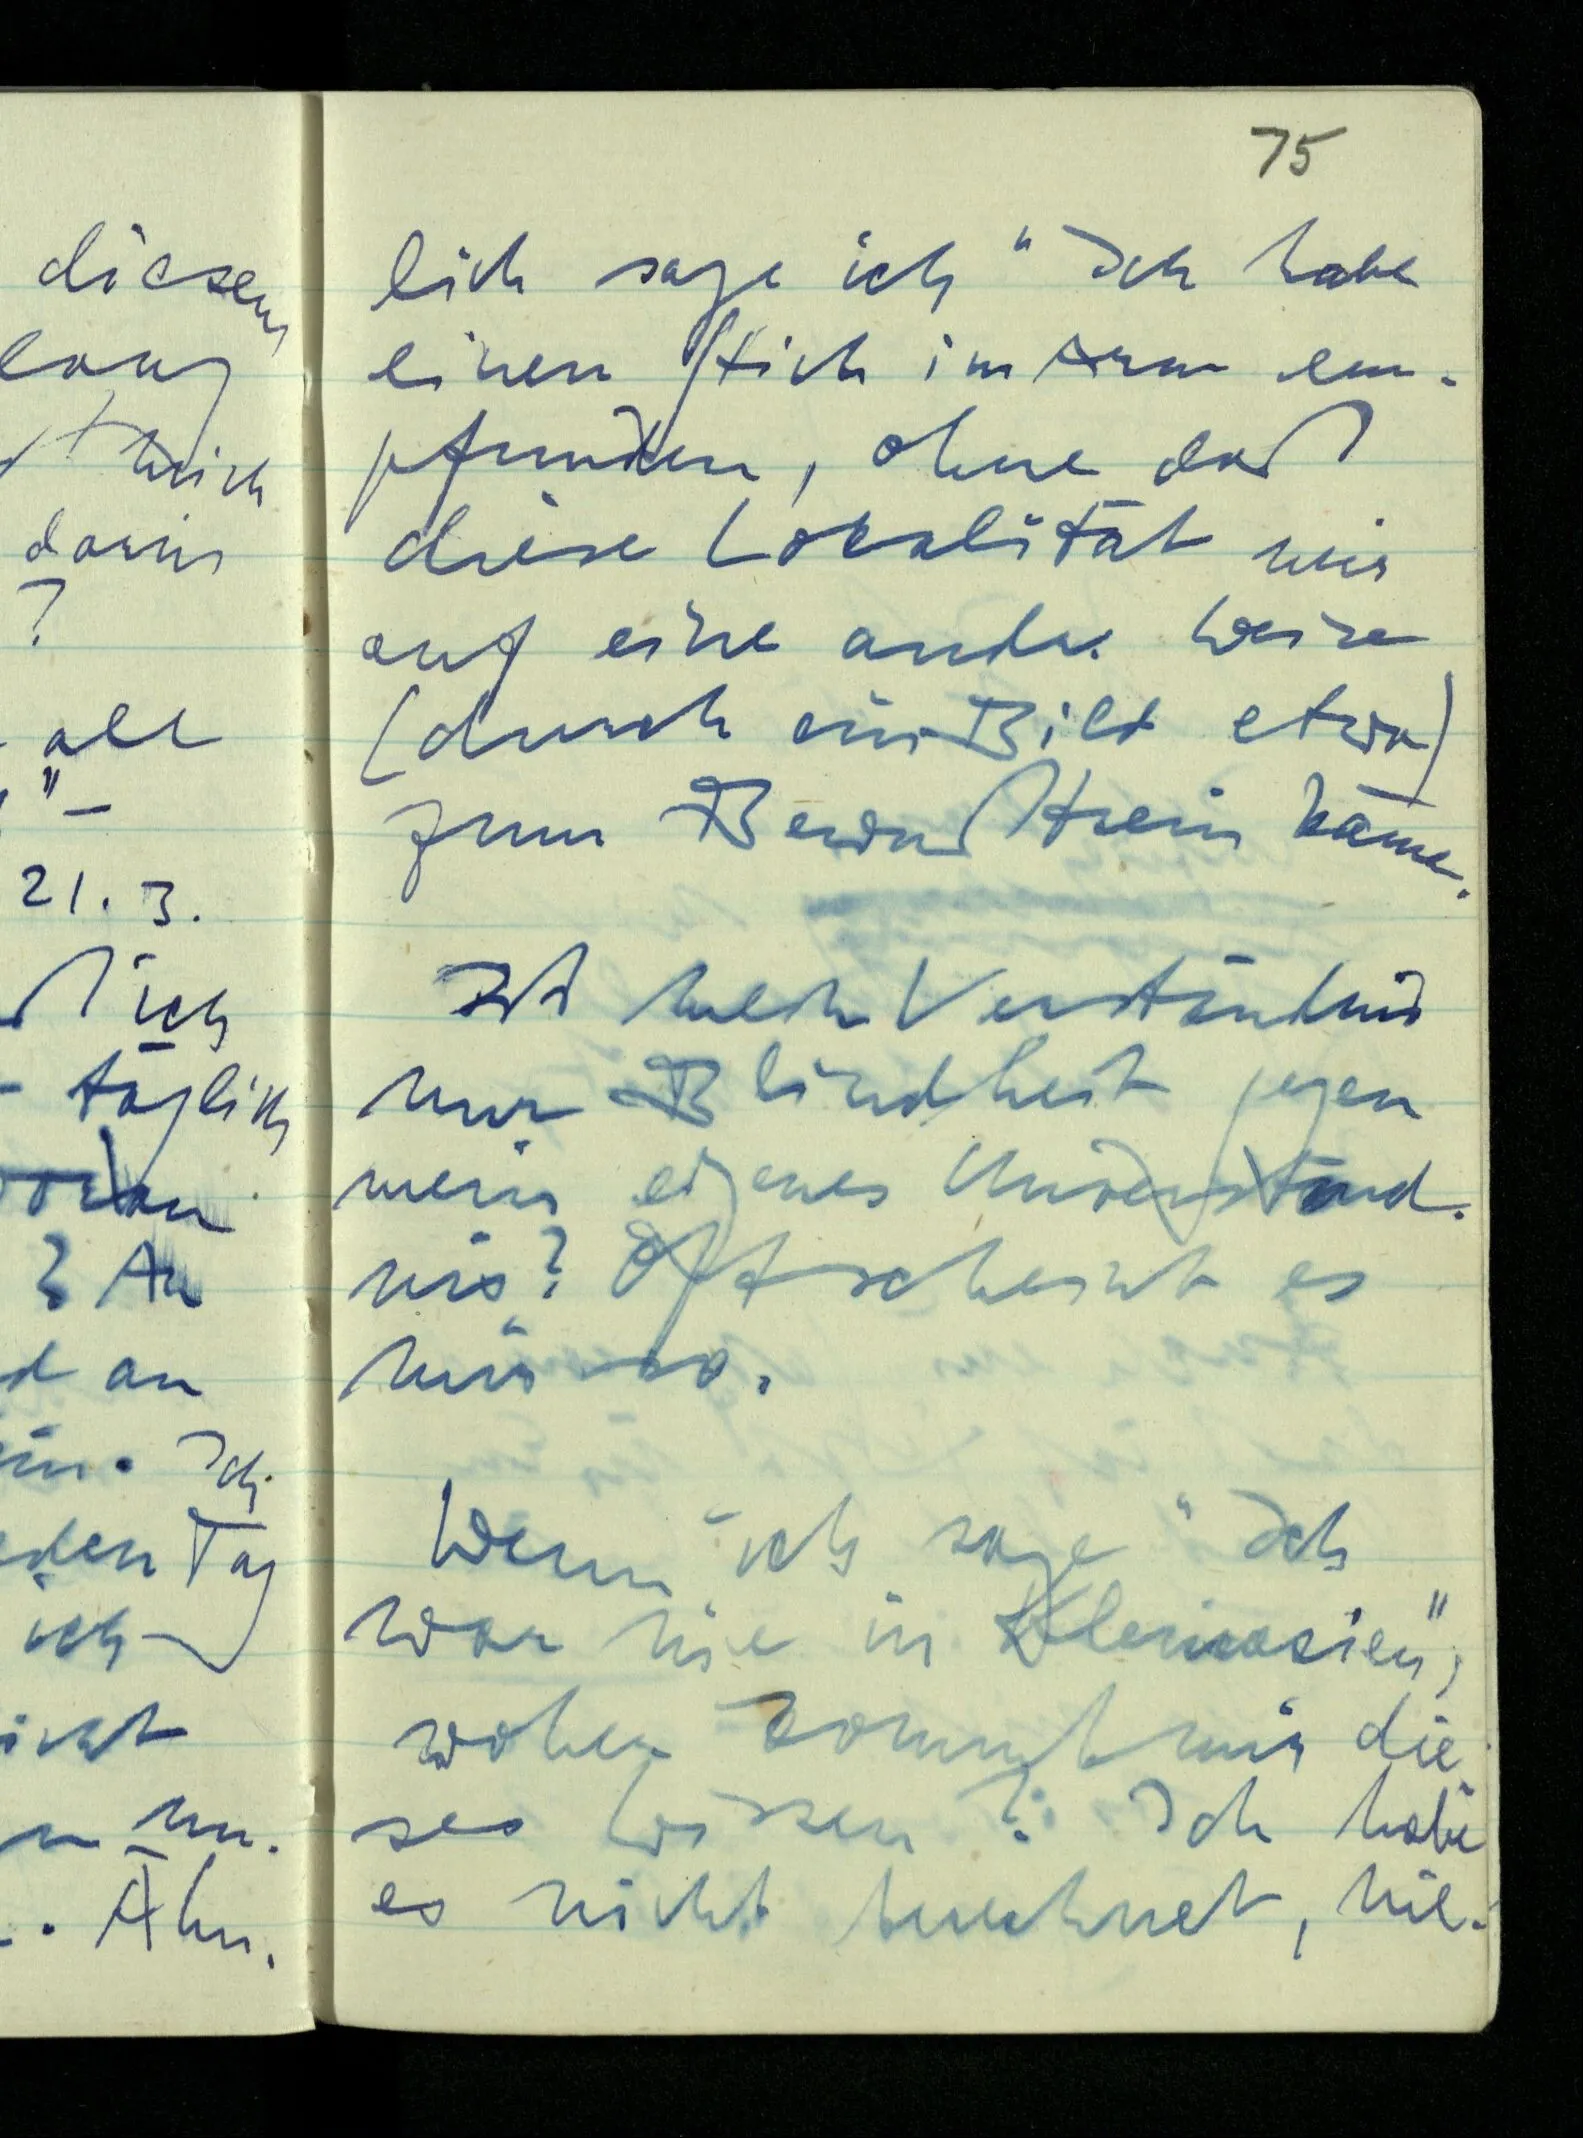 diesem
lang
mich
darin
?
alle
" –
21. 3.
ich
– täglich
? An
an
Ich
jeden Tag
ich
nicht
un-
. Ähn-
75
lich sage ich "Ich habe
einen Stich im Arm em-
pfunden, ohne daß
diese Lokalität mir
auf eine andre Weise
(durch ein Bild etwa)
zum Bewußtsein käme.
Ist mein Verständnis
nur Blindheit gegen
mein eigenes Unverständ-
nis? Oft scheint es
mir so.
Wenn ich sage "Ich
war nie in Kleinasien",
woher kommt mir die-
ses Wissen? Ich habe
es nicht berechnet, nie-